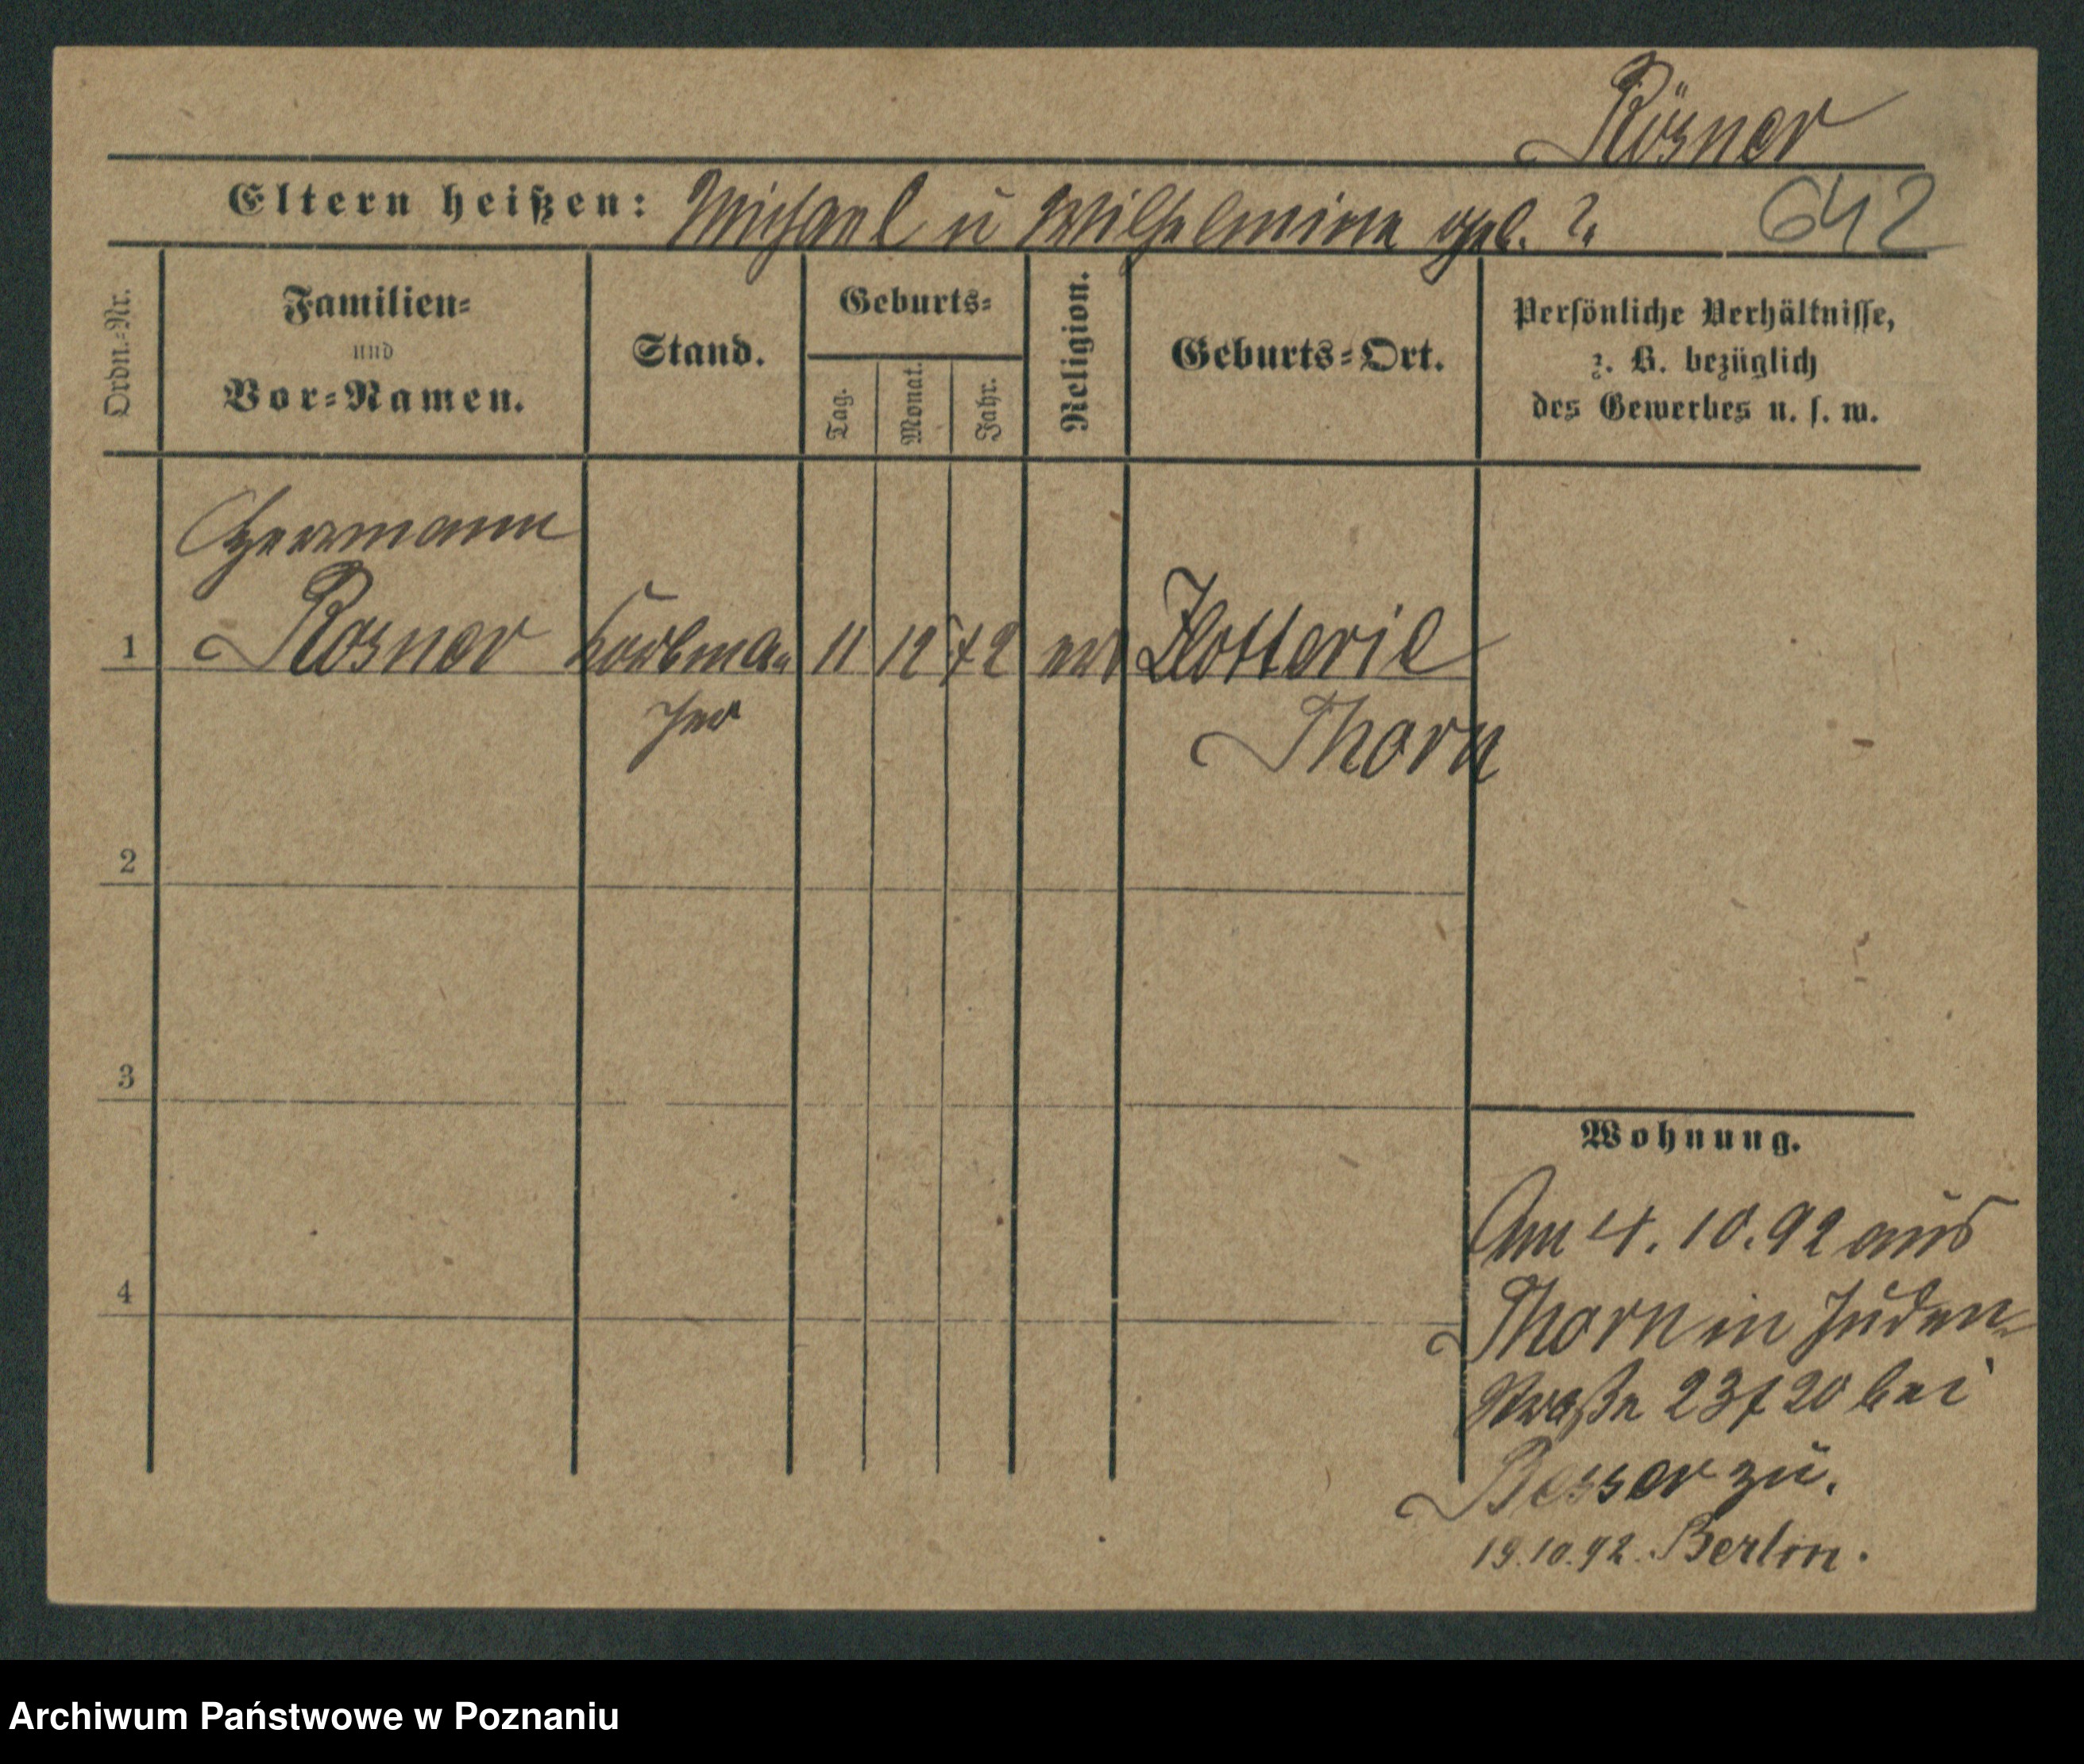 Rösner
Eltern heißen: Michael u Wilhelmine geb. ?
642
Ordn.-Nr.
Familien-
und
Vor-Namen.
Stand.
Geburts-
Tag.
Monat.
Jahr.
Religion.
Geburts-Ort.
Persönliche Verhältnisse,
z. B. bezüglich
des Gewerbes u. s. w.
Herrmann
1 Rosner Korbma- 11 12 72 Zlotterie
cher Thorn
2
3
4
Wohnung.
Am 4. 10. 92 aus
Thorn in Juden-
straße 23/20 bei
Besser zu.
19.10.92. Berlin.
Archiwum Państwowe w Poznaniu